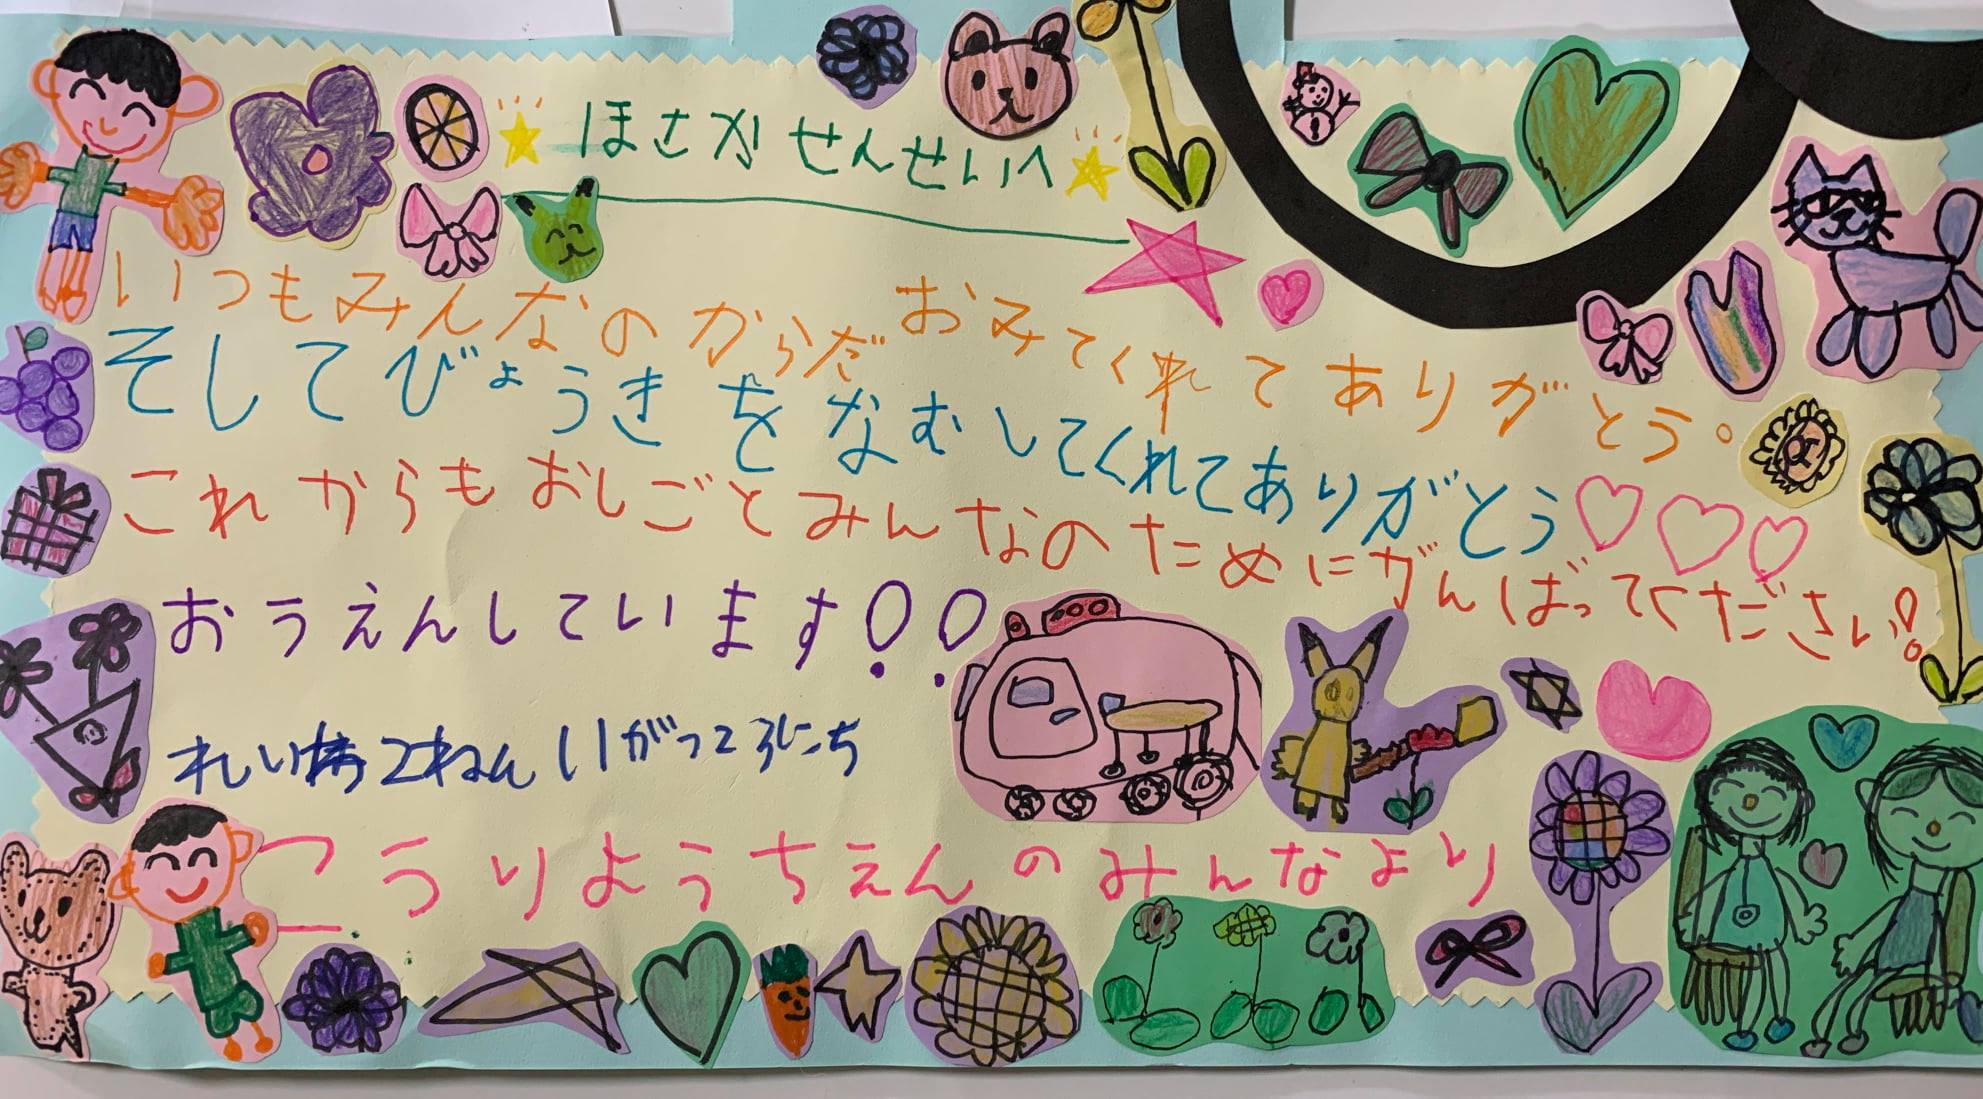 ほさかせんせいへ
いつもみんなのからだおみてくれてありがとう。
そしてびょうきをなおしてくれてありがとう
これからもおしごとみんなのためにがんばってください!
おうえんしています!!
れい和2ねん11がつ25にち
こうりようちえんのみんなより